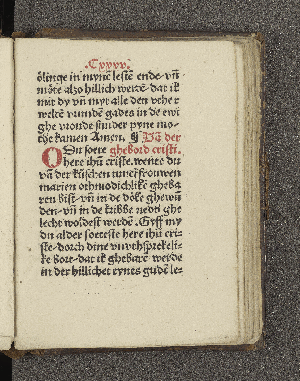 .Cxxxv.
ölinge in mynē lestē ende· vñ
möte alzo hillich werdē· dat ik
mit dy vñ myt alle den vthe r
welrē vnmdem gades in de ewi
ghe vronde sunder pyne mo-
the kamen Amen. ¶ Vā der
O Du sote ghebord cristi.
here ihū criste. wente du
vā der küschen iuncfrouwen
marien othmodichlikē gheba
ren bist· vñ in de döke ghewū
den· vñ in de kribbe nedē ghe
lecht woldest werdē. Gyff my
du alder sotteste here ihū cri-
ste· dorch dine vnvthsprekeli-
ke bort· dat ik ghebarē werde
in der hillichet eynes gudē le-